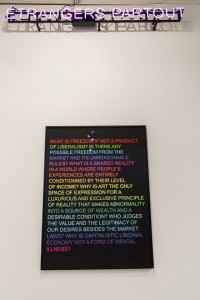 ÉTRANGERS PARTOUT
WHAT IS FREEDOM IF NOT A PRODUCT
OF LIBERALISM? IS THERE ANY
POSSIBLE FREEDOM FROM THE
MARKET AND ITS UNREASONABLE
RULES? WHAT IS A SHARED REALITY
IN A WORLD WHERE PEOPLE'S
EXPERIENCES ARE ENTIRELY
CONDITIONNED BY THEIR LEVEL
OF INCOME? WHY IS ART THE ONLY
SPACE OF EXPRESSION FOR A
LUXURIOUS AND EXCLUSIVE PRINCIPLE
OF REALITY THAT MAKES ABNORMALITY
INTO A SOURCE OF WEALTH AND A
DESIRABLE CONDITION? WHO JUDGES
THE VALUE AND THE LEGITIMACY OF
OUR DESIRES BESIDES THE MARKET
LAWS? WHY IS CAPITALISTIC LIBIDINAL
ECONOMY NOT A FORM OF MENTAL
ILLNESS?